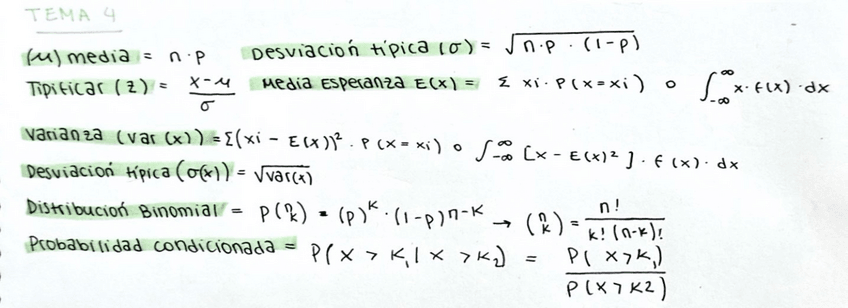 TEMA 4
(μ) media = n · p Desviación típica (σ) = √n·p · (1-p)
Tipificar (z) = x-μ / σ Media Esperanza E(x) = Σ xi · P(x=xi) o ∫_{-∞}^{∞} x · f(x) · dx
Varianza (Var (x)) = Σ(xi - E(x))² · P(x=xi) o ∫_{-∞}^{∞} [x - E(x)²] · f(x) · dx
Desviación típica (σ(x)) = √var(x)
Distribución Binomial = P(n k) = (p)^K · (1-p)^{n-K} → (n k) = n! / k! (n-k)!
Probabilidad condicionada = P(X > K₁ | X > K₂) = P( X > K₁) / P(X > K2)